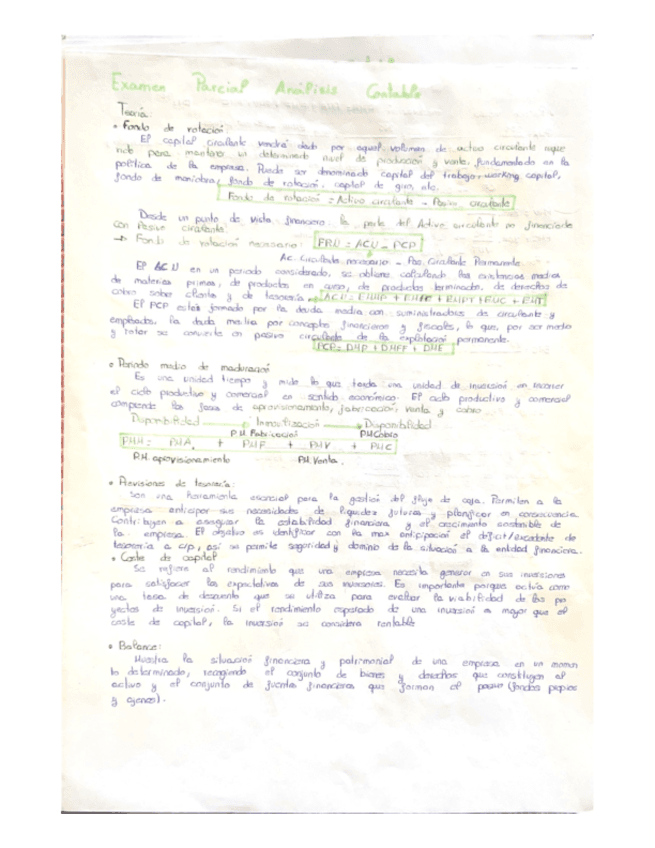 Examen Parcial Análisis Contable
Teoría:
• Fondo de rotación
El capital circulante vendrá dado por aquel volumen de activo circulante reque
rido para mantener un determinado nivel de producción y venta, fundamentado en la
política de la empresa. Puede ser denominado capital del trabajo, working capital,
fondo de maniobra, fondo de rotación, capital de giro, etc.
Fondo de rotación = Activo circulante - Pasivo circulante
Desde un punto de vista financiero la parte del Activo circulante no financiada
con Pasivo circulante.
→ Fondo de rotación necesario: FRN = ACN - PCP
Ac. Circulante necesario - Pas. Circulante Permanente.
El ACN en un periodo considerado, se obtiene calculando las existencias medias
de materias primas, de productos en curso, de productos terminados, de derechos de
cobro sobre clientes y de tesorería.
El PCP estará formado por la deuda media con suministradores de circulante y
empleados, la deuda media por conceptos financieros y fiscales, lo que, por ser medio
y rotar se convierte en pasivo circulante de la explotación permanente.
PCP = DMP + DMFF + DME
• Periodo medio de maduración
Es una unidad tiempo y mide lo que tarda una unidad de inversión en recorrer
el ciclo productivo y comercial en sentido económico. El ciclo productivo y comercial
comprende las fases de aprovisionamiento, fabricación, venta y cobro
Disponibilidad → Inmovilización → Disponibilidad
P.M. Fabricación P.M Cobro
PMM = PMA + PMF + PMV + PMC
P.M. aprovisionamiento P.M. Venta.
• Previsiones de tesorería:
Son una herramienta esencial para la gestión del flujo de caja. Permiten a la
empresa anticipar sus necesidades de liquidez futuras y planificar en consecuencia.
Contribuyen a asegurar la estabilidad financiera y el crecimiento sostenible de
la empresa. El objetivo es identificar con la max anticipación el déficit/excedente de
tesorería a c/p, así se permite seguridad y dominio de la situación a la entidad financiera.
• Coste de capital
Se refiere al rendimiento que una empresa necesita generar en sus inversiones
para satisfacer las expectativas de sus inversores. Es importante porque actúa como
una tasa de descuento que se utiliza para evaluar la viabilidad de los pro
yectos de inversión. Si el rendimiento esperado de una inversión es mayor que el
coste de capital, la inversión se considera rentable
• Balance:
Muestra la situación financiera y patrimonial de una empresa en un momen
to determinado, recogiendo el conjunto de bienes y derechos que constituyen el
activo y el conjunto de fuentes financieras que forman el pasivo (fondos propios
y ajenos).